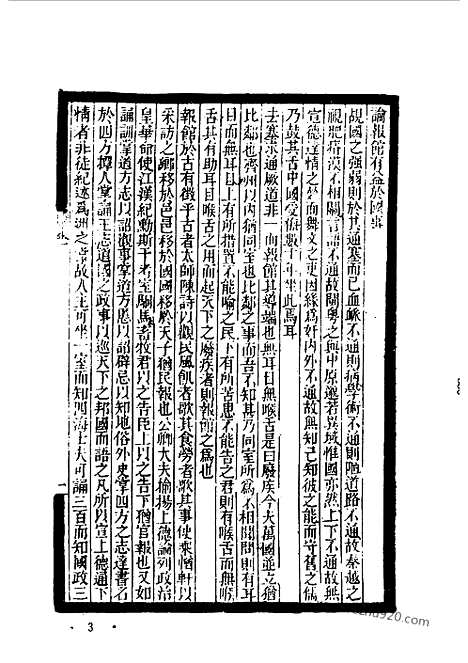 論報館有益於國事
覘國之強弱則於其通塞而已血脈不通則病學術不通則陋道路不通故秦越之
視肥瘠漠不相關言語不通故閩粵之與中原邈若異域惟國亦然上下不通故無
宣德達情之效而舞文之吏因緣爲奸內外不通故無知己知彼之能而守舊之儒
乃鼓其舌中國受侮數十年坐此焉耳
去塞求通厥道非一而報館其導端也無耳目無喉舌是曰廢疾今夫萬國並立猶
比鄰也齊州以內猶同室也比鄰之事而吾不知甚乃同室所爲不相聞問則有耳
目而無耳目上有所措置不能喻之民下有所苦患不能告之君則有喉舌而無喉
舌其有助耳目喉舌之用而起天下之廢疾者則報館之爲也
報館於古有徵乎古者太師陳詩以觀民風飢者歌其食勞者歌其事使乘輶軒以
采訪之鄉移於邑邑移於國國移於天子猶民報也公卿大夫揄揚上德論列政治
皇華命使江漢紀勳斯干考室駉馬畜牧君以之告臣上以之告下猶官報也又如
誦訓掌道方志以詔觀事掌道方慝以詔辟忌以知地俗外史掌四方之志達書名
於四方撢人掌誦王志道國之政事以巡天下之邦國而語之凡所以宣上德通下
情者非徒紀述爲洲之掌故人主可坐一室而知四海士夫可誦三百而知國政三
一
3